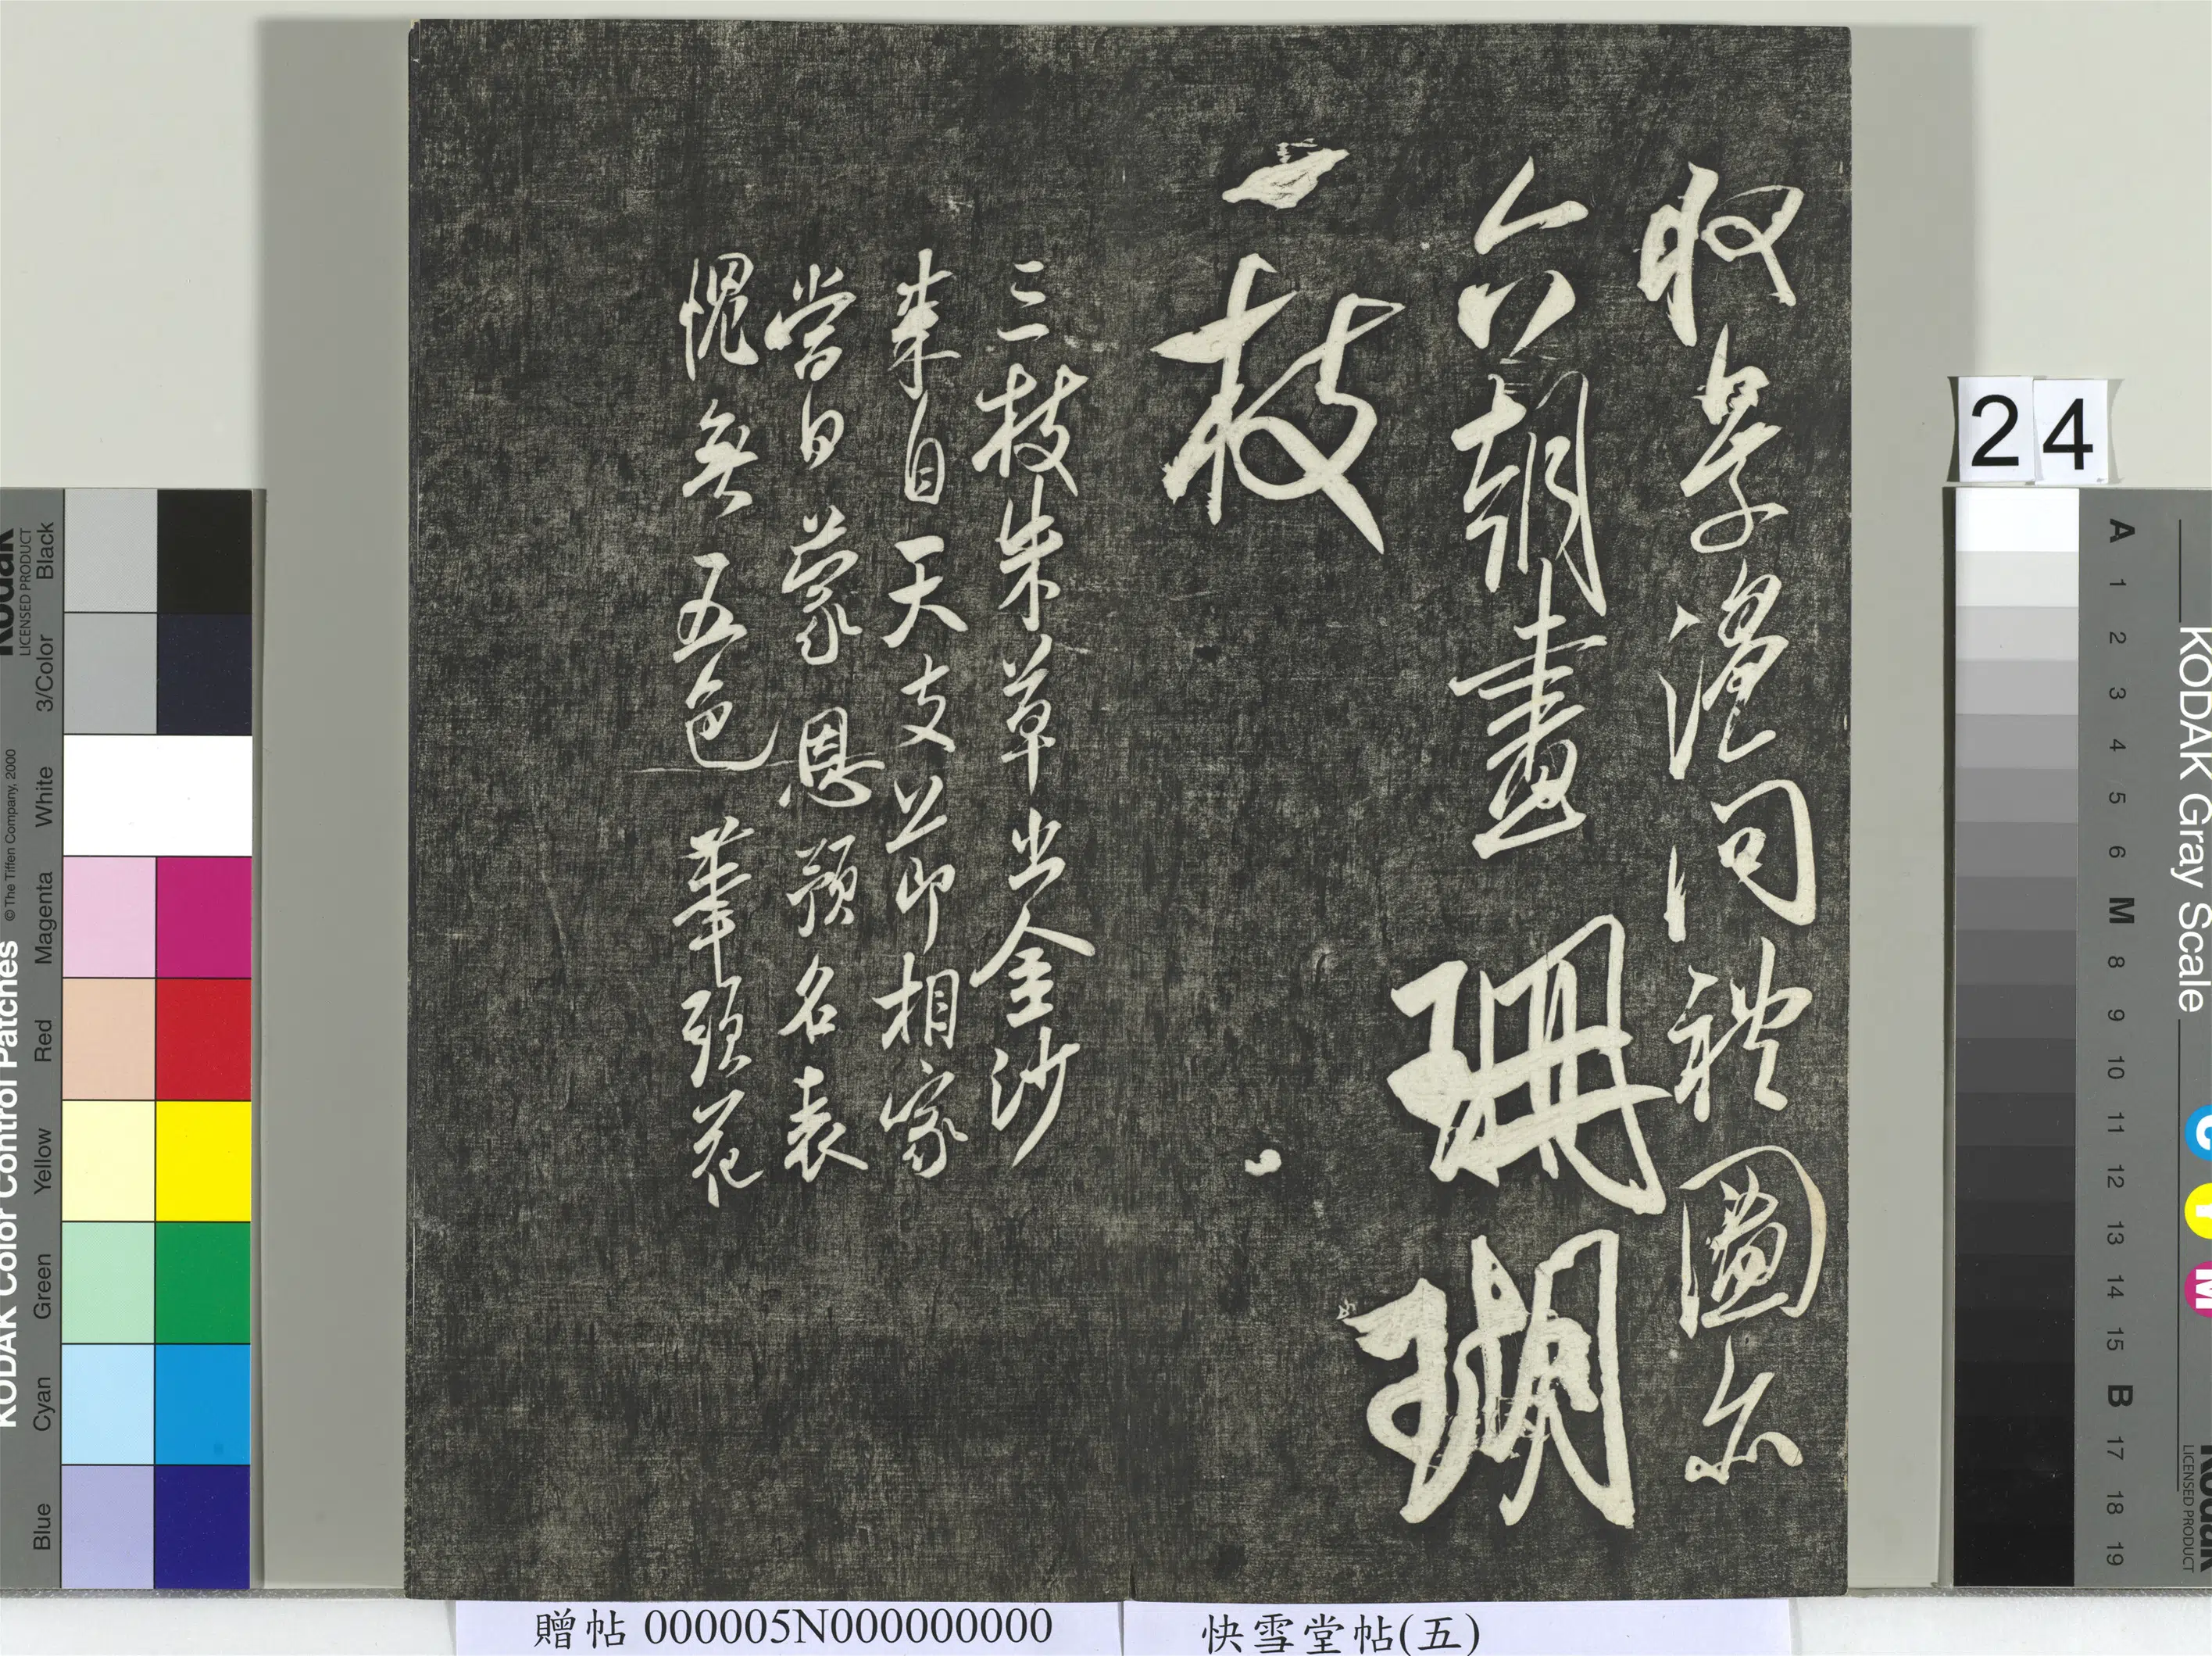 收景溫問禮圖亦
六朝畫 珊瑚
一枝
三枝朱草出金沙
來自天支節相家
當日蒙恩預名表
愧無五色筆頭花
24
贈帖 000005N000000000
快雪堂帖(五)
KODAK Color Control Patches
© The Tiffen Company, 2000
Kodak
LICENSED PRODUCT
Blue Cyan Green Yellow Red Magenta White 3/Color Black
KODAK Gray Scale
C Y M
Kodak
LICENSED PRODUCT
A 1 2 3 4 5 6 M 8 9 10 11 12 13 14 15 B 17 18 19